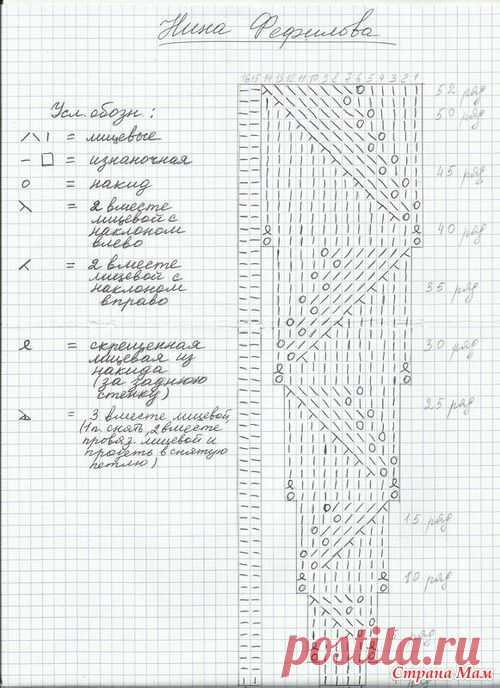 Нина Фефилова
16 15 14 13 12 11 10 9 8 7 6 5 4 3 2 1
52 ряд
50 ряд
Усл. обозн :
/ \ | = лицевые
– □ = изнаночная
о = накид
= 2 вместе
лицевой с
наклоном
влево
= 2 вместе
лицевой с
наклоном
вправо
= скрещенная
лицевая из
накида
(за заднюю
стенку)
= 3 вместе лицевой,
(1 п. снять, 2 вместе
провяз. лицевой и
продеть в снятую
петлю)
45 ряд
40 ряд
35 ряд
30 ряд
25 ряд
15 ряд
10 ряд
ряд
postila.ru
Страна Мам